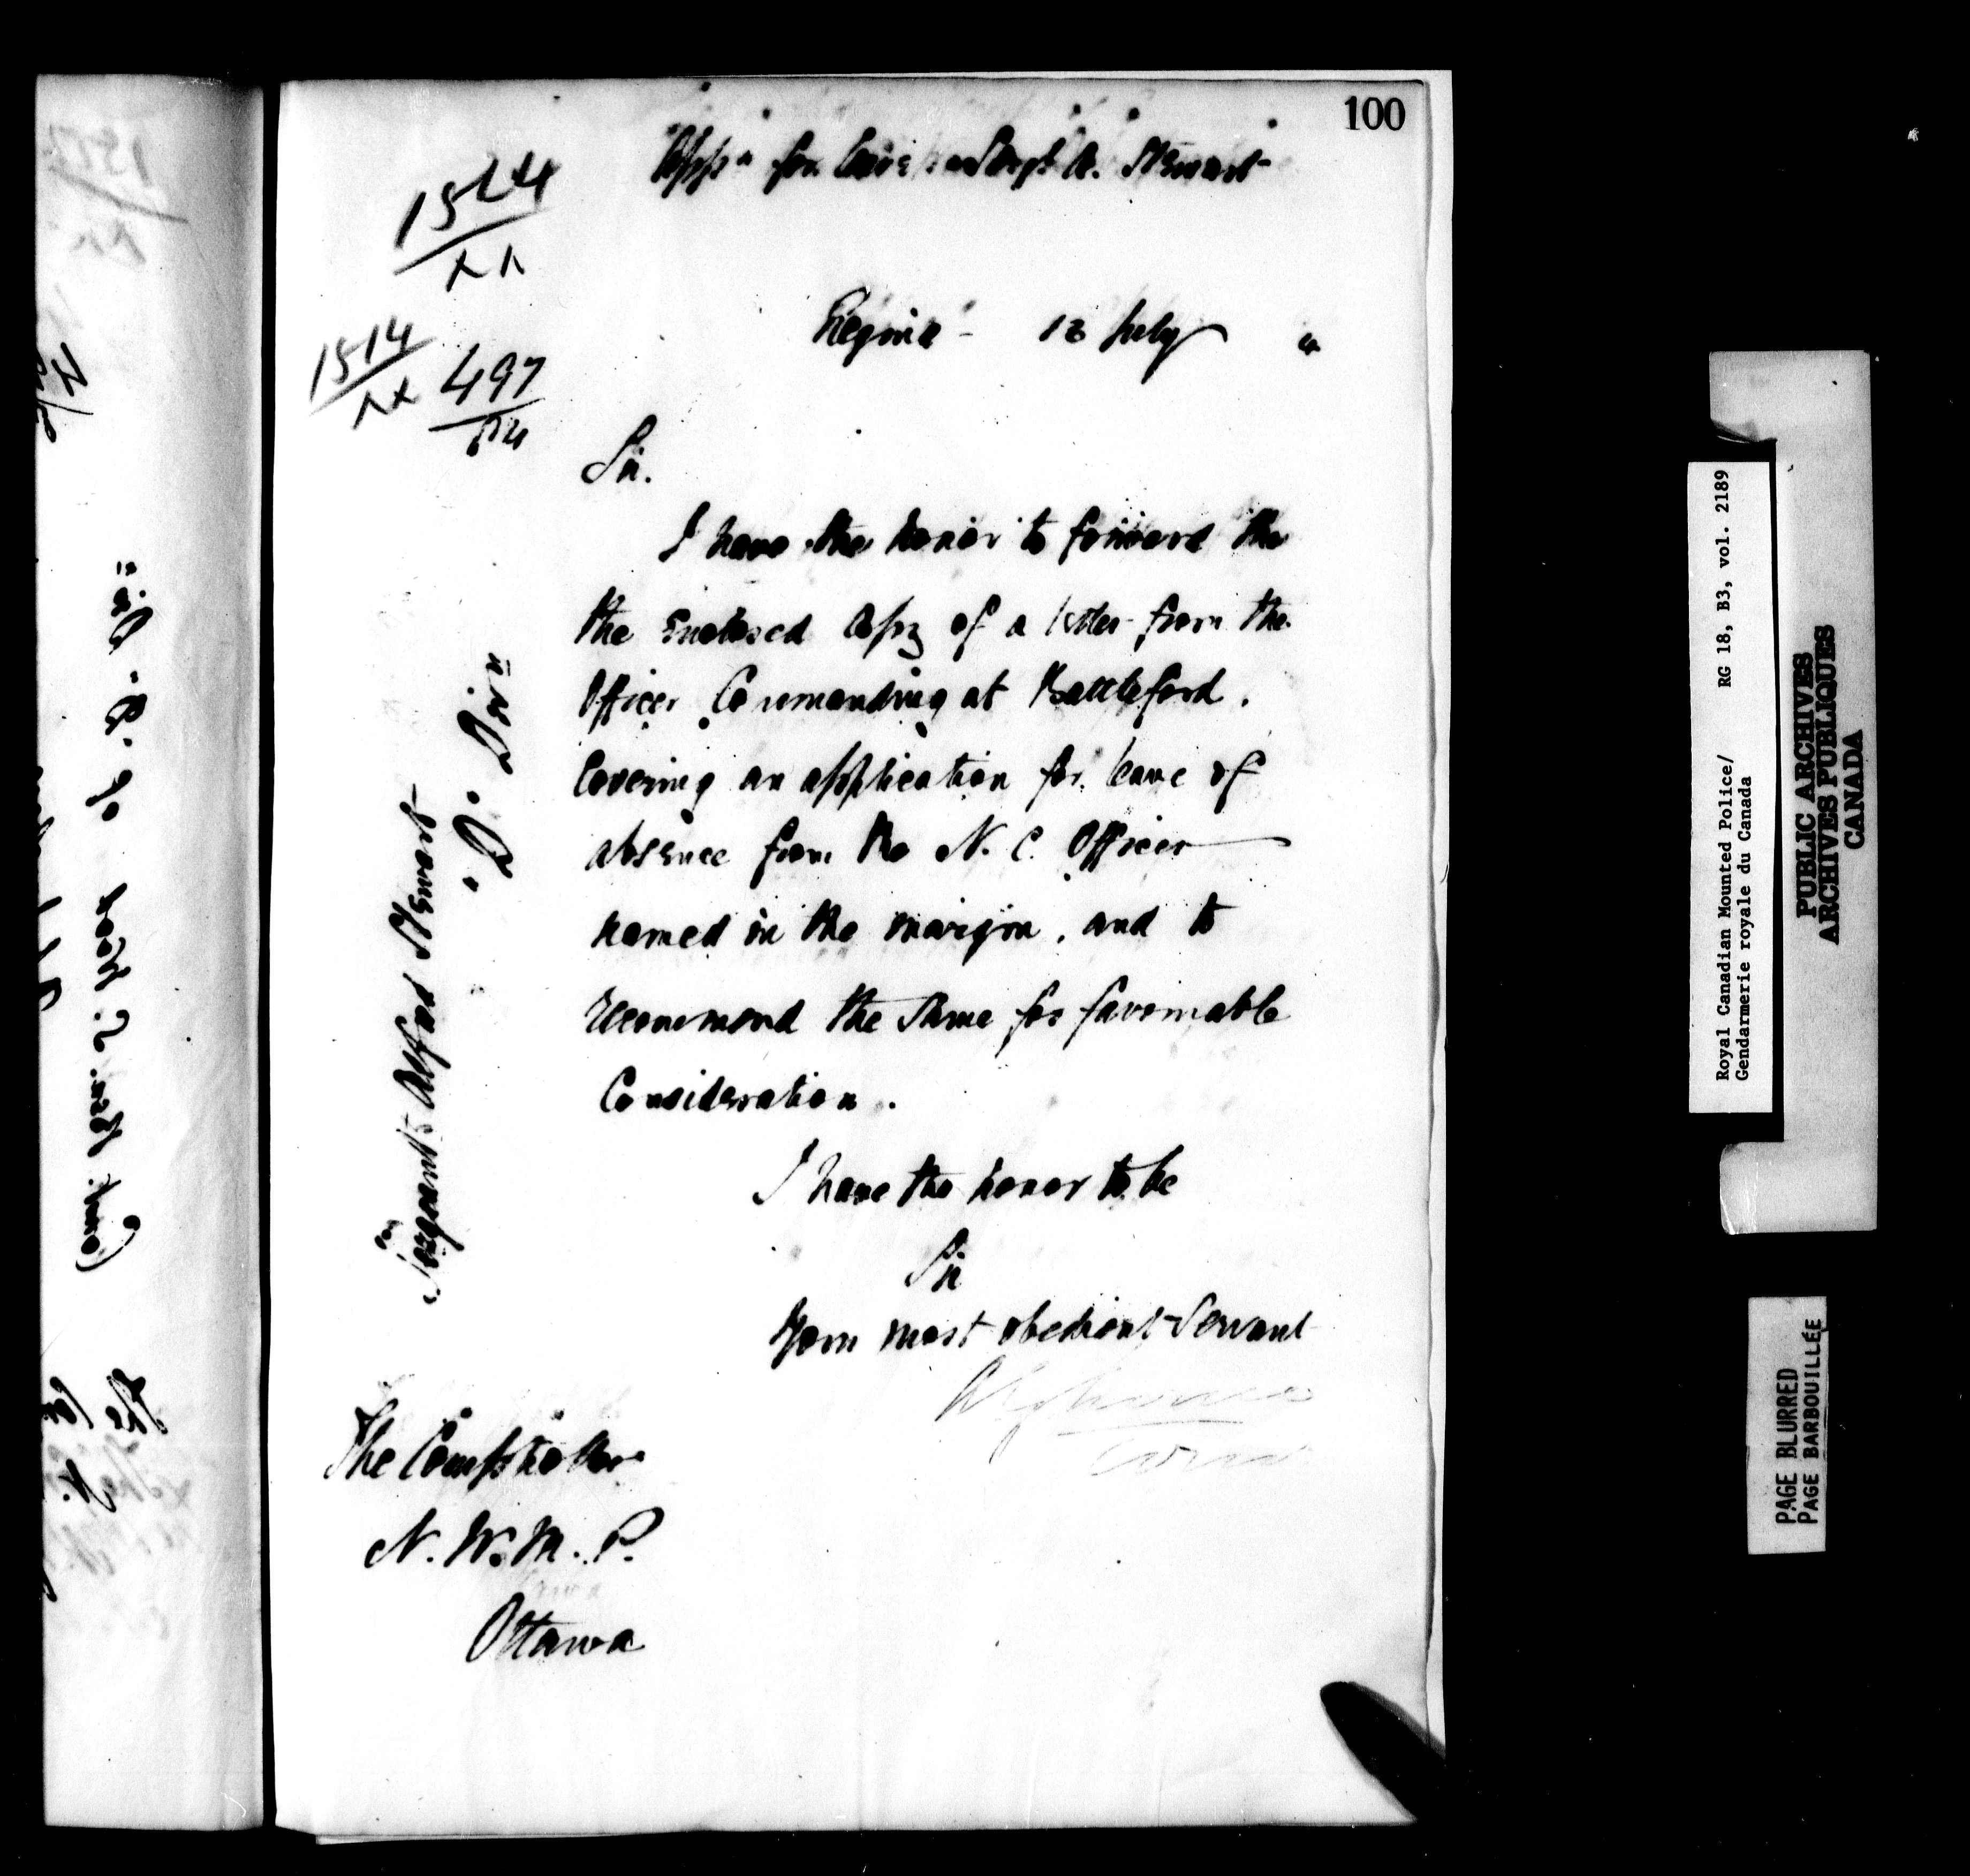 100
Appn for Leave Sergt A. Stewart
1524
1514
497
Regina 12 July 4
Sir.
I have the honor to forward the
the Enclosed Copy of a letter from the
Officer Commanding at Battleford.
Covering an application for leave of
absence from the N. C. Officer
named in the margin. and to
recommend the same for favourable
Consideration.
Sergeant Alfred Stewart
"D. Divn
I have the honor to be
Sir
Your most obedient Servant
The Comptroller
N. W. M. P.
Ottawa
Royal Canadian Mounted Police/ RG 18, B3, vol. 2189
Gendarmerie royale du Canada
PUBLIC ARCHIVES
ARCHIVES PUBLIQUES
CANADA
PAGE BLURRED
PAGE BARBOUILLÉE